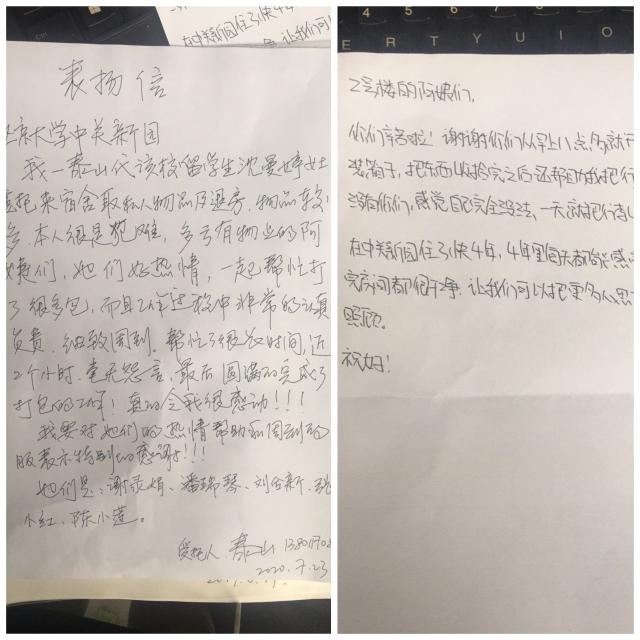 表扬信
京大学中关新园
我—泰山代该校留学生沈曼婷女
委托来宿舍取私人物品及退房.物品较
多.本人很是犯难,多亏有物业的阿
姨们,她们好热情,一起帮忙打
了很多包,而且工作过程中非常的认真
负责.细致周到.帮忙了很长时间,近
2个小时.毫无怨言,最后圆满的完成了
打包的工作!真的令我很感动!!!
我要对她们的热情帮助和周到的
服表示特别的感谢!!!
她们是:谢灵娟、潘瑞琴、刘台新、张
小红、陈小莲。
受托人.泰山 13801702
2020.7.23
在中关新园住了快4年
让我们可
4 5 6 7 8 9
E R T Y U I O
2号楼的阿姨们,
你们辛苦啦!谢谢你们从早上八点多就开
装箱子,把东西收拾完之后还帮助我把行
没有你们,感觉自己完全没法一天内把行李
在中关新园住了快4年,4年里每天都能感
完房间都很干净,让我们可以把更多心思
照顾.
祝好!